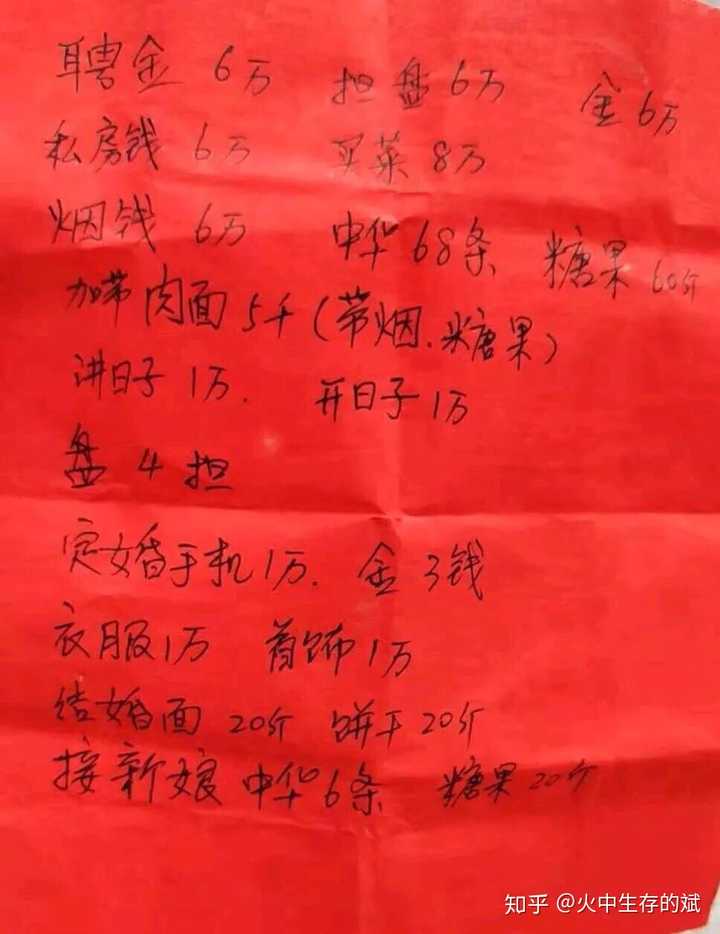 聘金 6万 担盘 6万 金 6万
私房钱 6万 买菜 8万
烟钱 6万 中华 68条 糖果 60斤
加带肉面 5千（带烟、糖果）
讲日子 1万. 开日子 1万
盘 4 担
定婚手机 1万. 金 3钱
衣服 1万 首饰 1万
结婚面 20斤 饼干 20斤
接新娘 中华 6条 糖果 20斤
知乎 @火中生存的斌